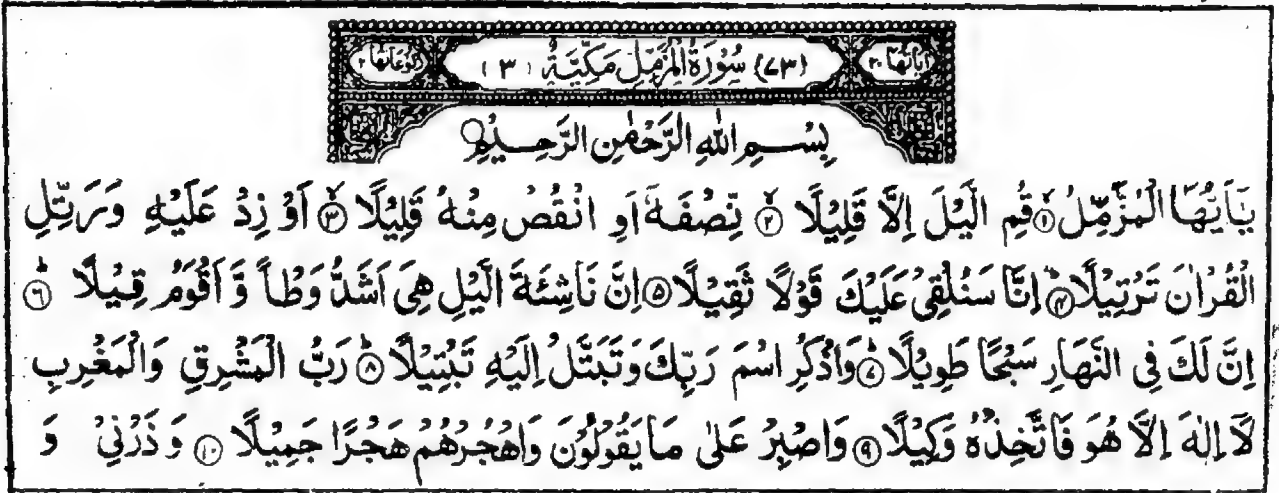 اٰیَاتُهَا ۲۰ (۷۳) سُوْرَةُ الْمُزَّمِّلِ مَكِّیَّةٌ (۳) رُكُوْعَاتُهَا ۲
بِسْمِ اللّٰهِ الرَّحْمٰنِ الرَّحِیْمِ
یٰۤاَیُّهَا الْمُزَّمِّلُ ۱ قُمِ الَّیْلَ اِلَّا قَلِیْلًا ۲ نِّصْفَهٗۤ اَوِ انْقُصْ مِنْهُ قَلِیْلًا ۳ اَوْ زِدْ عَلَیْهِ وَرَتِّلِ
الْقُرْاٰنَ تَرْتِیْلًا ۴ اِنَّا سَنُلْقِیْ عَلَیْكَ قَوْلًا ثَقِیْلًا ۵ اِنَّ نَاشِئَةَ الَّیْلِ هِیَ اَشَدُّ وَطْاً وَّ اَقْوَمُ قِیْلًا ۶
اِنَّ لَكَ فِی النَّهَارِ سَبْحًا طَوِیْلًا ۷ وَاذْكُرِ اسْمَ رَبِّكَ وَتَبَتَّلْ اِلَیْهِ تَبْتِیْلًا ۸ رَبُّ الْمَشْرِقِ وَالْمَغْرِبِ
لَاۤ اِلٰهَ اِلَّا هُوَ فَاتَّخِذْهُ وَكِیْلًا ۹ وَاصْبِرْ عَلٰی مَا یَقُوْلُوْنَ وَاهْجُرْهُمْ هَجْرًا جَمِیْلًا ۱۰ وَ ذَرْنِیْ وَ